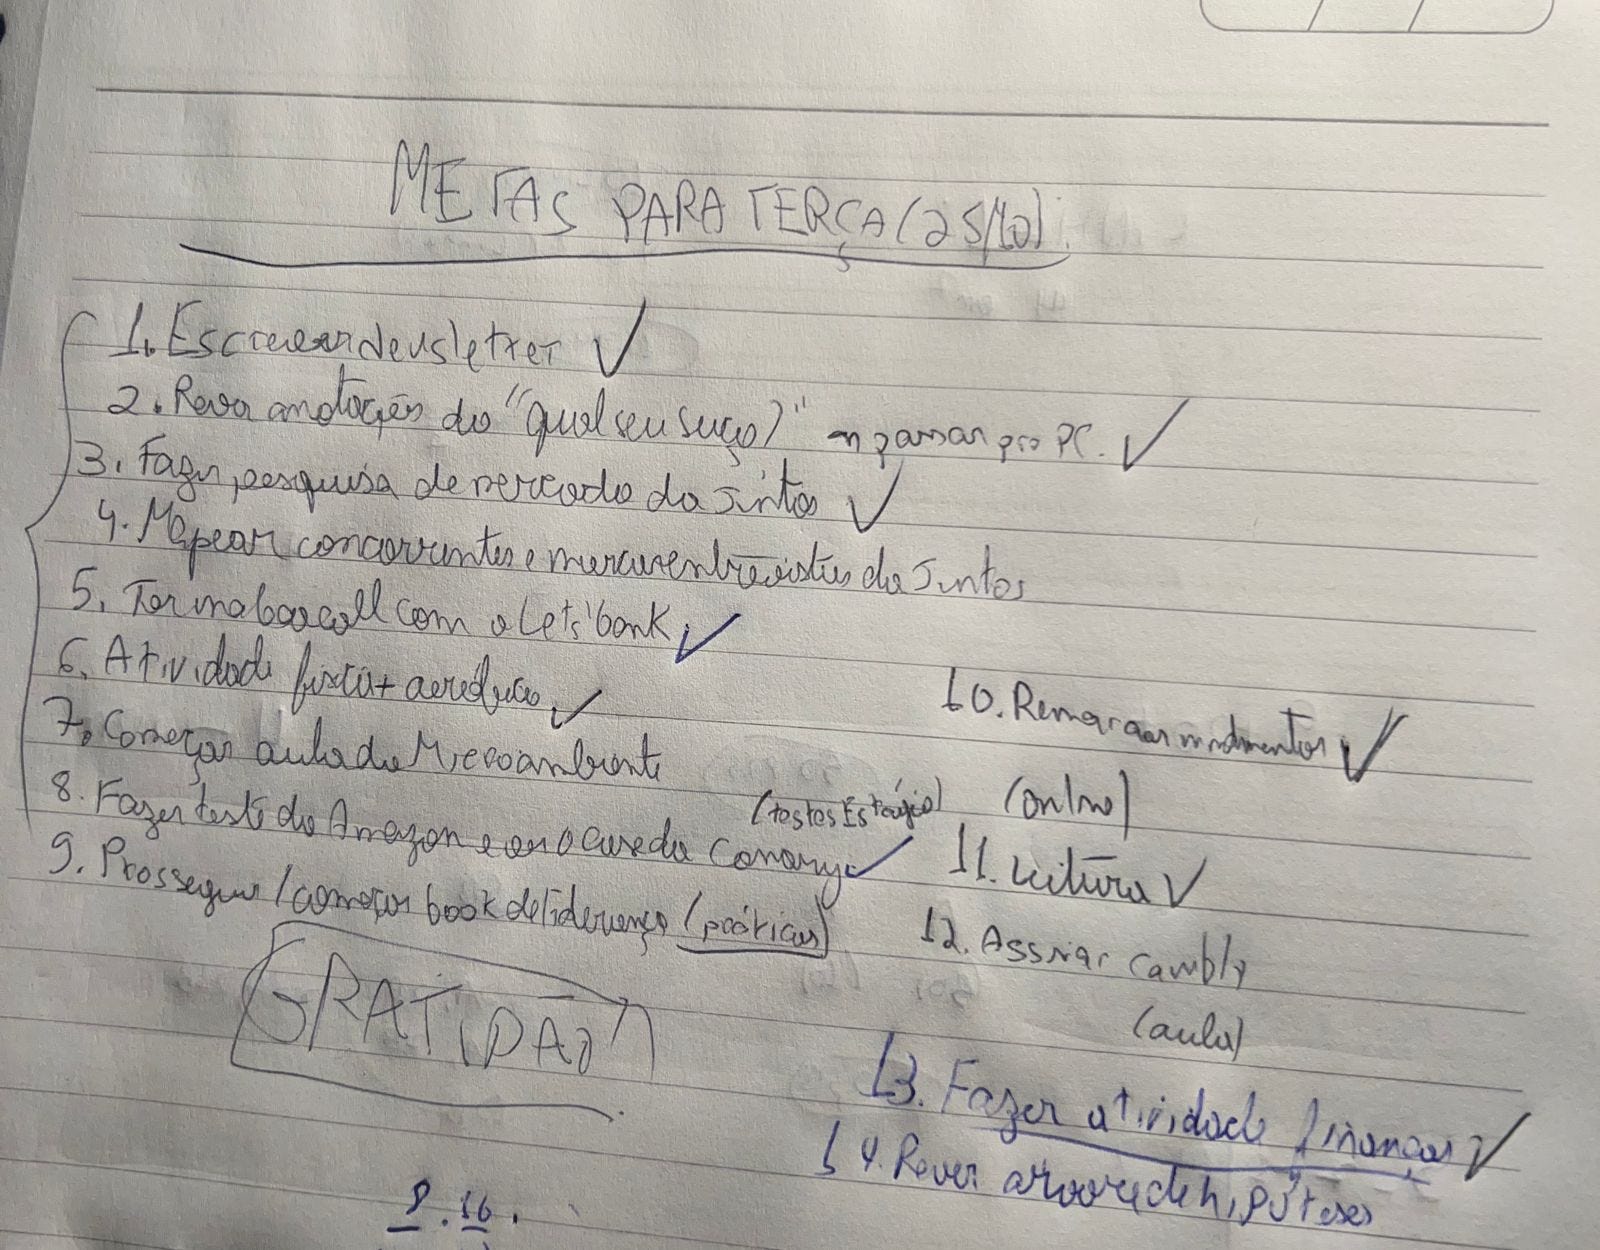 METAS PARA TERÇA (25/10).
1. Escrever newsletter ✓
2. Rever anotações do "Qual seu suço)" e passar pro PC. ✓
3. Fazer pesquisa de mercado da Juntos ✓
4. Mapear concorrentes e marcar entrevistas da Juntos
5. Ter uma boa call com o Lets'bank ✓
6. Atividade física + aeróbico ✓
7. Começar aula de Mercoambiente
8. Fazer teste da Amazon e (testes Estágio) ✓
9. Prosseguir / começar book de liderança (práticas)
GRATIDÃO
10. Remarcar ✓
(online)
11. Leitura ✓
12. Assinar cambly
(aula)
13. Fazer atividade finanças ✓
14. Rever arvore de hipóteses
9.16.